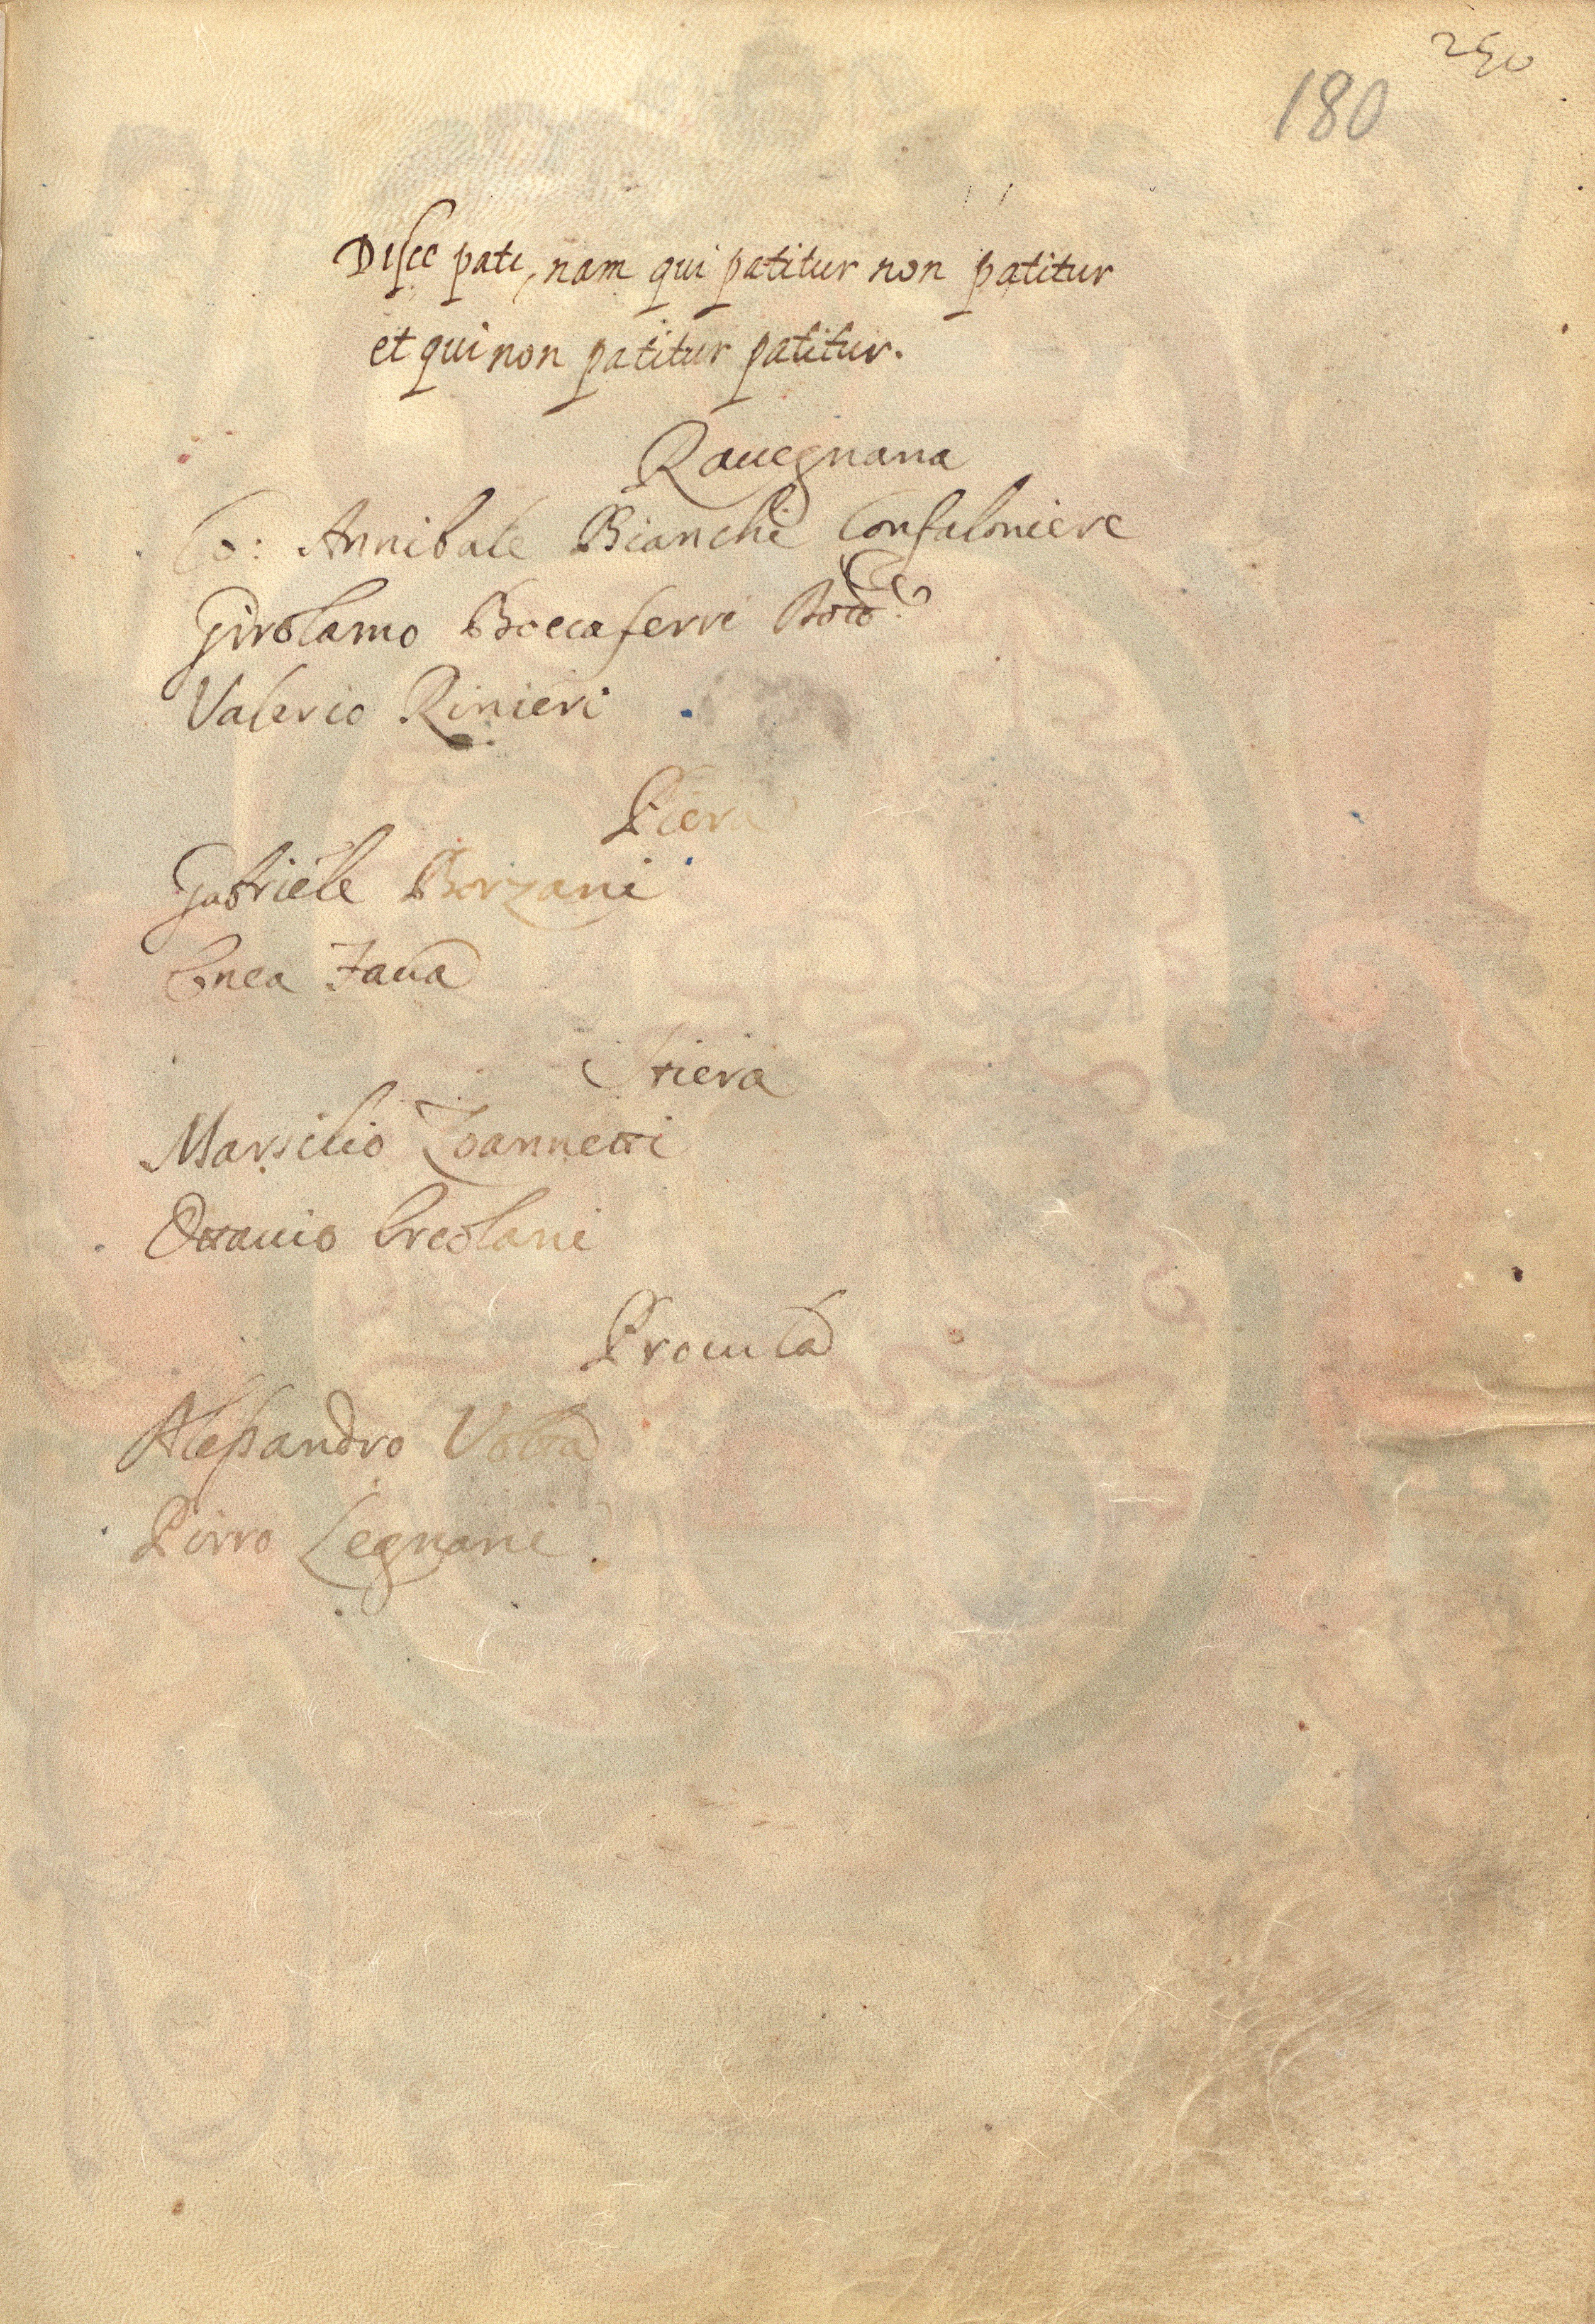 250
180
Disce pati, nam qui patitur non patitur
et qui non patitur patitur.
Rauegnana
Co: Annibale Bianchi Confaloniere
Girolamo Boccaferri
Valerio Rinieri
Piera
Gabriele Borzani
Enea Faua
Stiera
Marsilio Zoannetti
Ottauio Ercolani
Procula
Alessandro Volta
Pirro Legnani